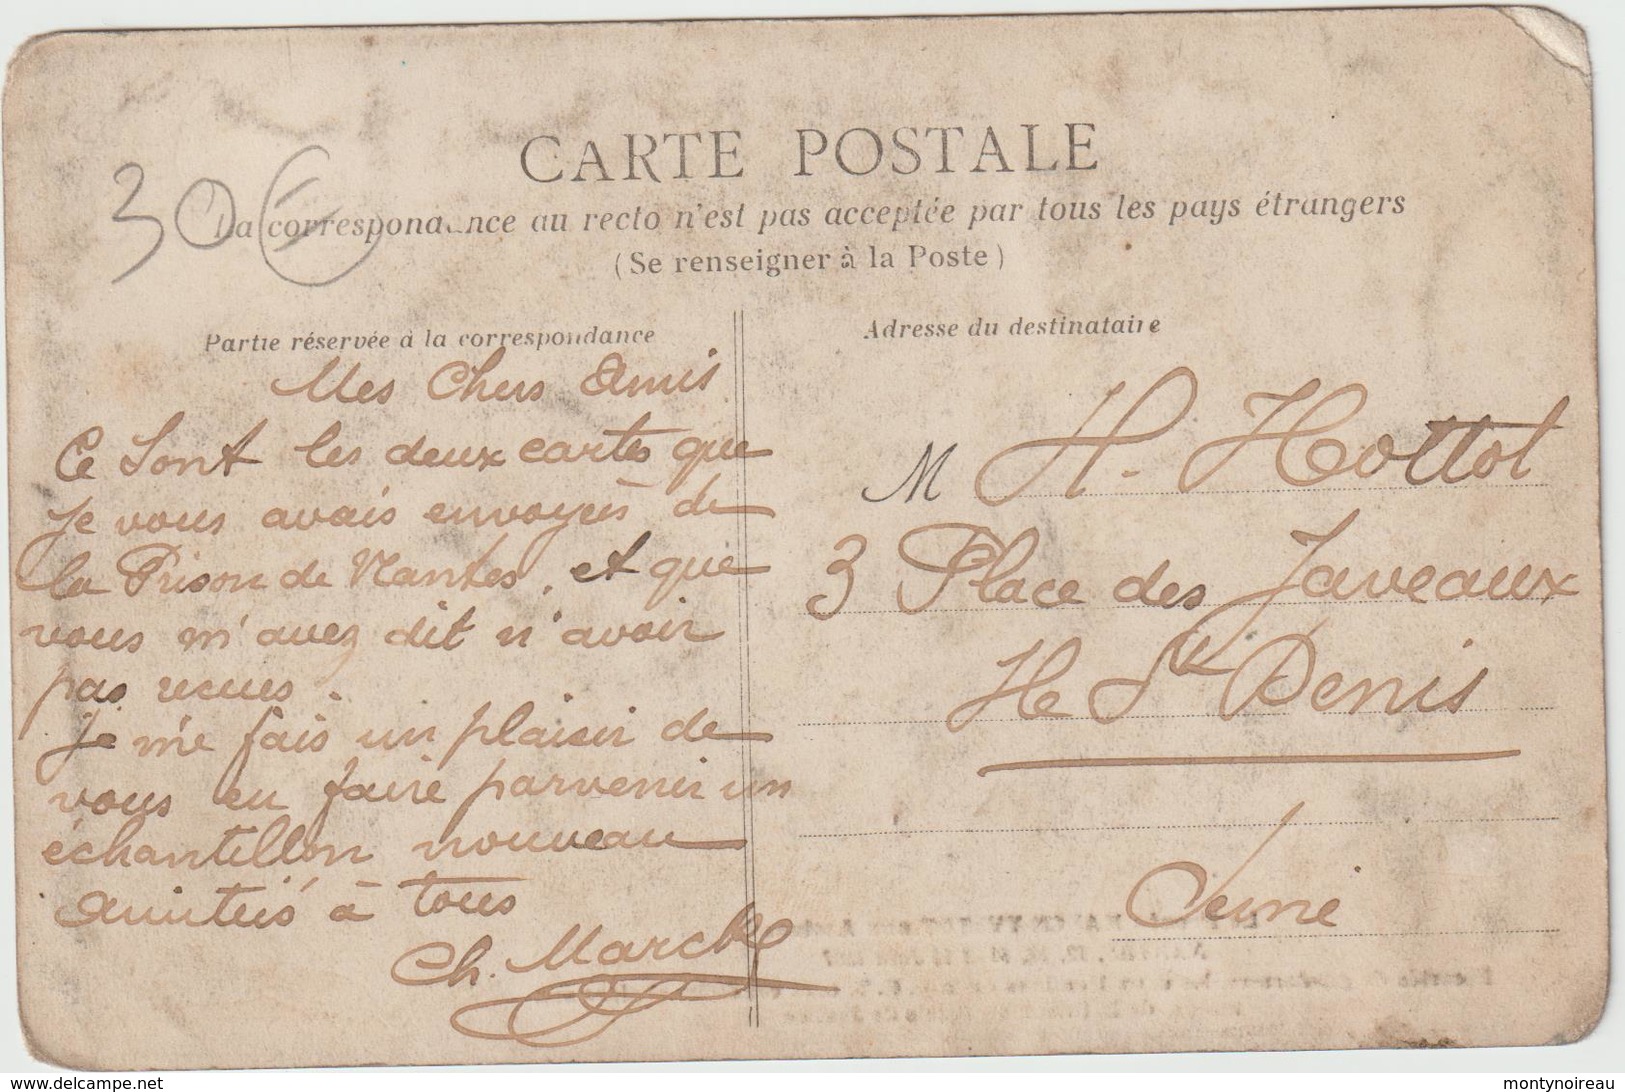 CARTE POSTALE
30€
La correspondance au recto n'est pas acceptée par tous les pays étrangers
(Se renseigner à la Poste)
Partie réservée à la correspondance
Mes Chers Amis
Ce Sont les deux cartes que
je vous avais envoyés de
la Prison de Nantes, et que
vous m'avez dit n'avoir
pas recues.
Je me fais un plaisir de
vous en faire parvenir un
échantillon nouveau
Amitiés à tous
Ch. Marck
Adresse du destinataire
M H. Hottot
3 Place des Javeaux
Ile St Denis
Seine
montynoireau
www.delcampe.net